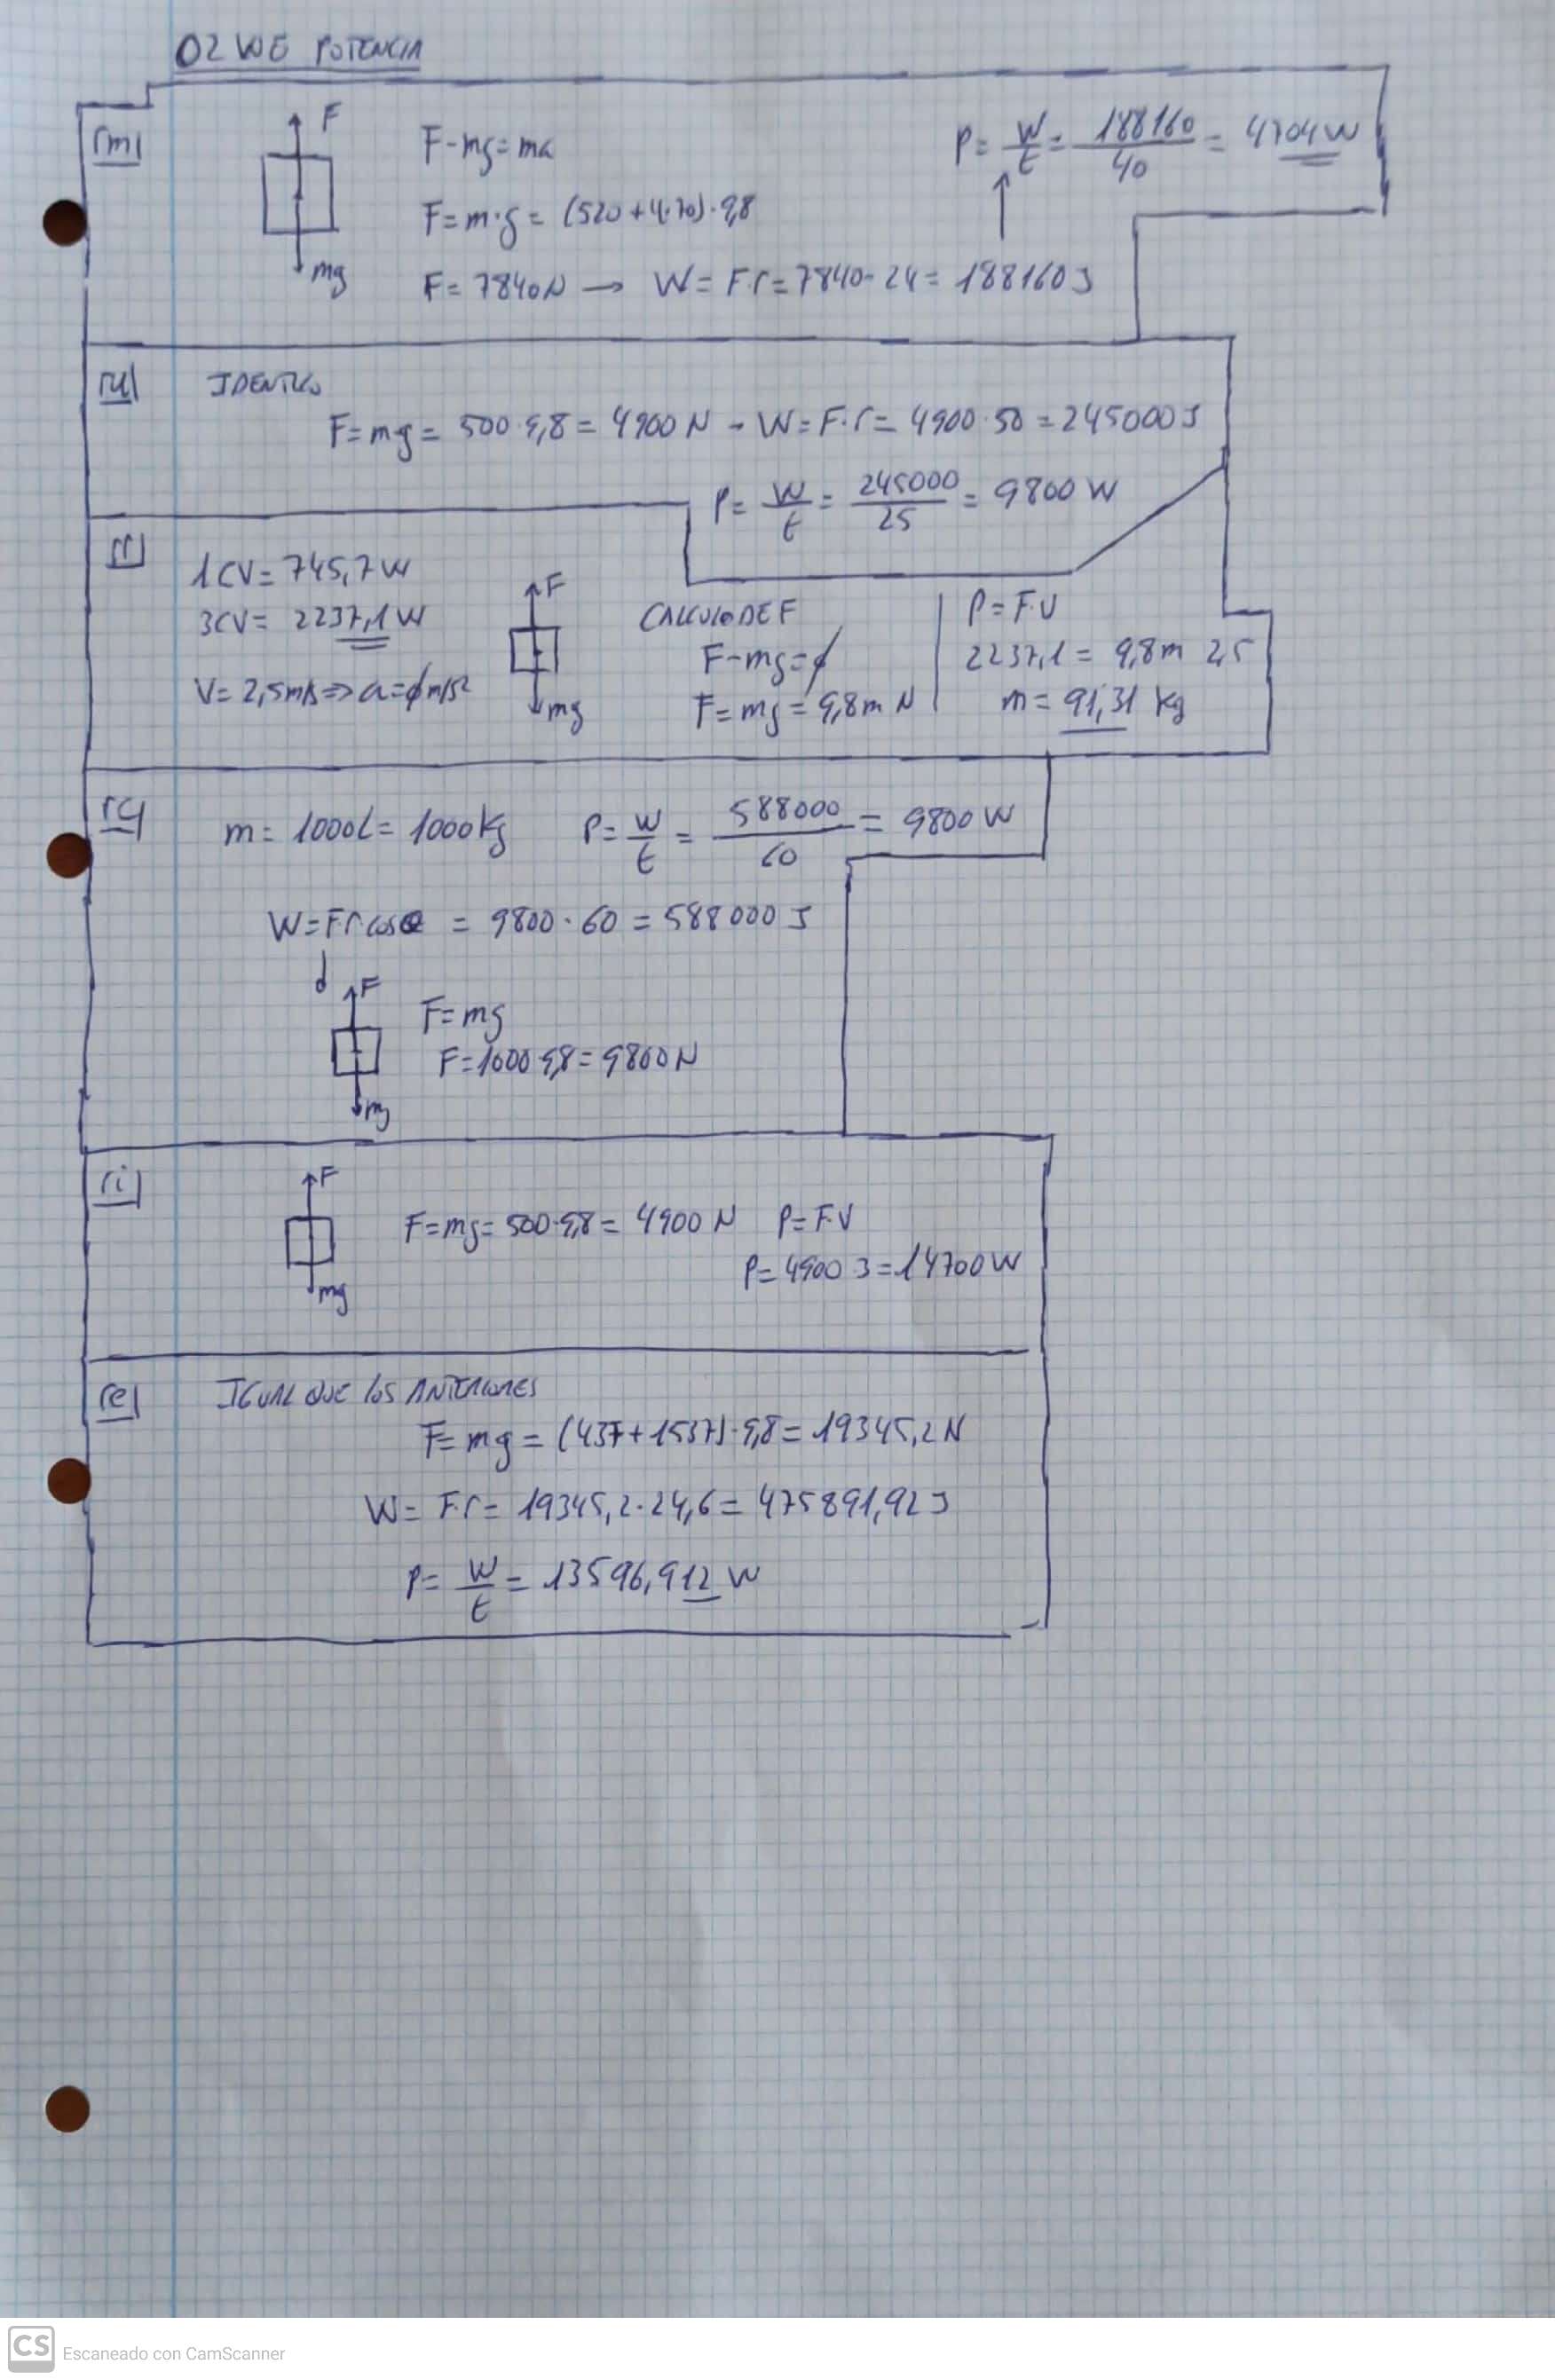 02 WE POTENCIA
rm|
F
mg
F-mg=ma
F=m·g=(520+4·70)·9,8
F=7840N → W=F·r=7840·24=188160J
P=W/t=188160/40=4704W
ru|
IDENTICO
F=mg=500·9,8=4900N - W=F·r=4900·50=245000J
P=W/t=245000/25=9800W
rr|
1CV=745,7W
3CV=2237,1W
V=2,5m/s=>a=ϕm/s2
F
mg
CALCULO DE F
F-mg=ϕ
F=mg=9,8m N
P=F·V
2237,1=9,8m 2,5
m=91,31 kg
rc|
m=1000L=1000kg
P=W/t=588000/60=9800W
W=Frcosθ=9800·60=588000J
F
mg
F=mg
F=1000·9,8=9800N
ri|
F
mg
F=mg=500·9,8=4900N P=F·V
P=4900·3=14700W
re|
IGUAL QUE LOS ANTERIORES
F=mg=(437+1537)·9,8=19345,2N
W=F·r=19345,2·24,6=475891,92J
P=W/t=13596,912W
CS Escaneado con CamScanner